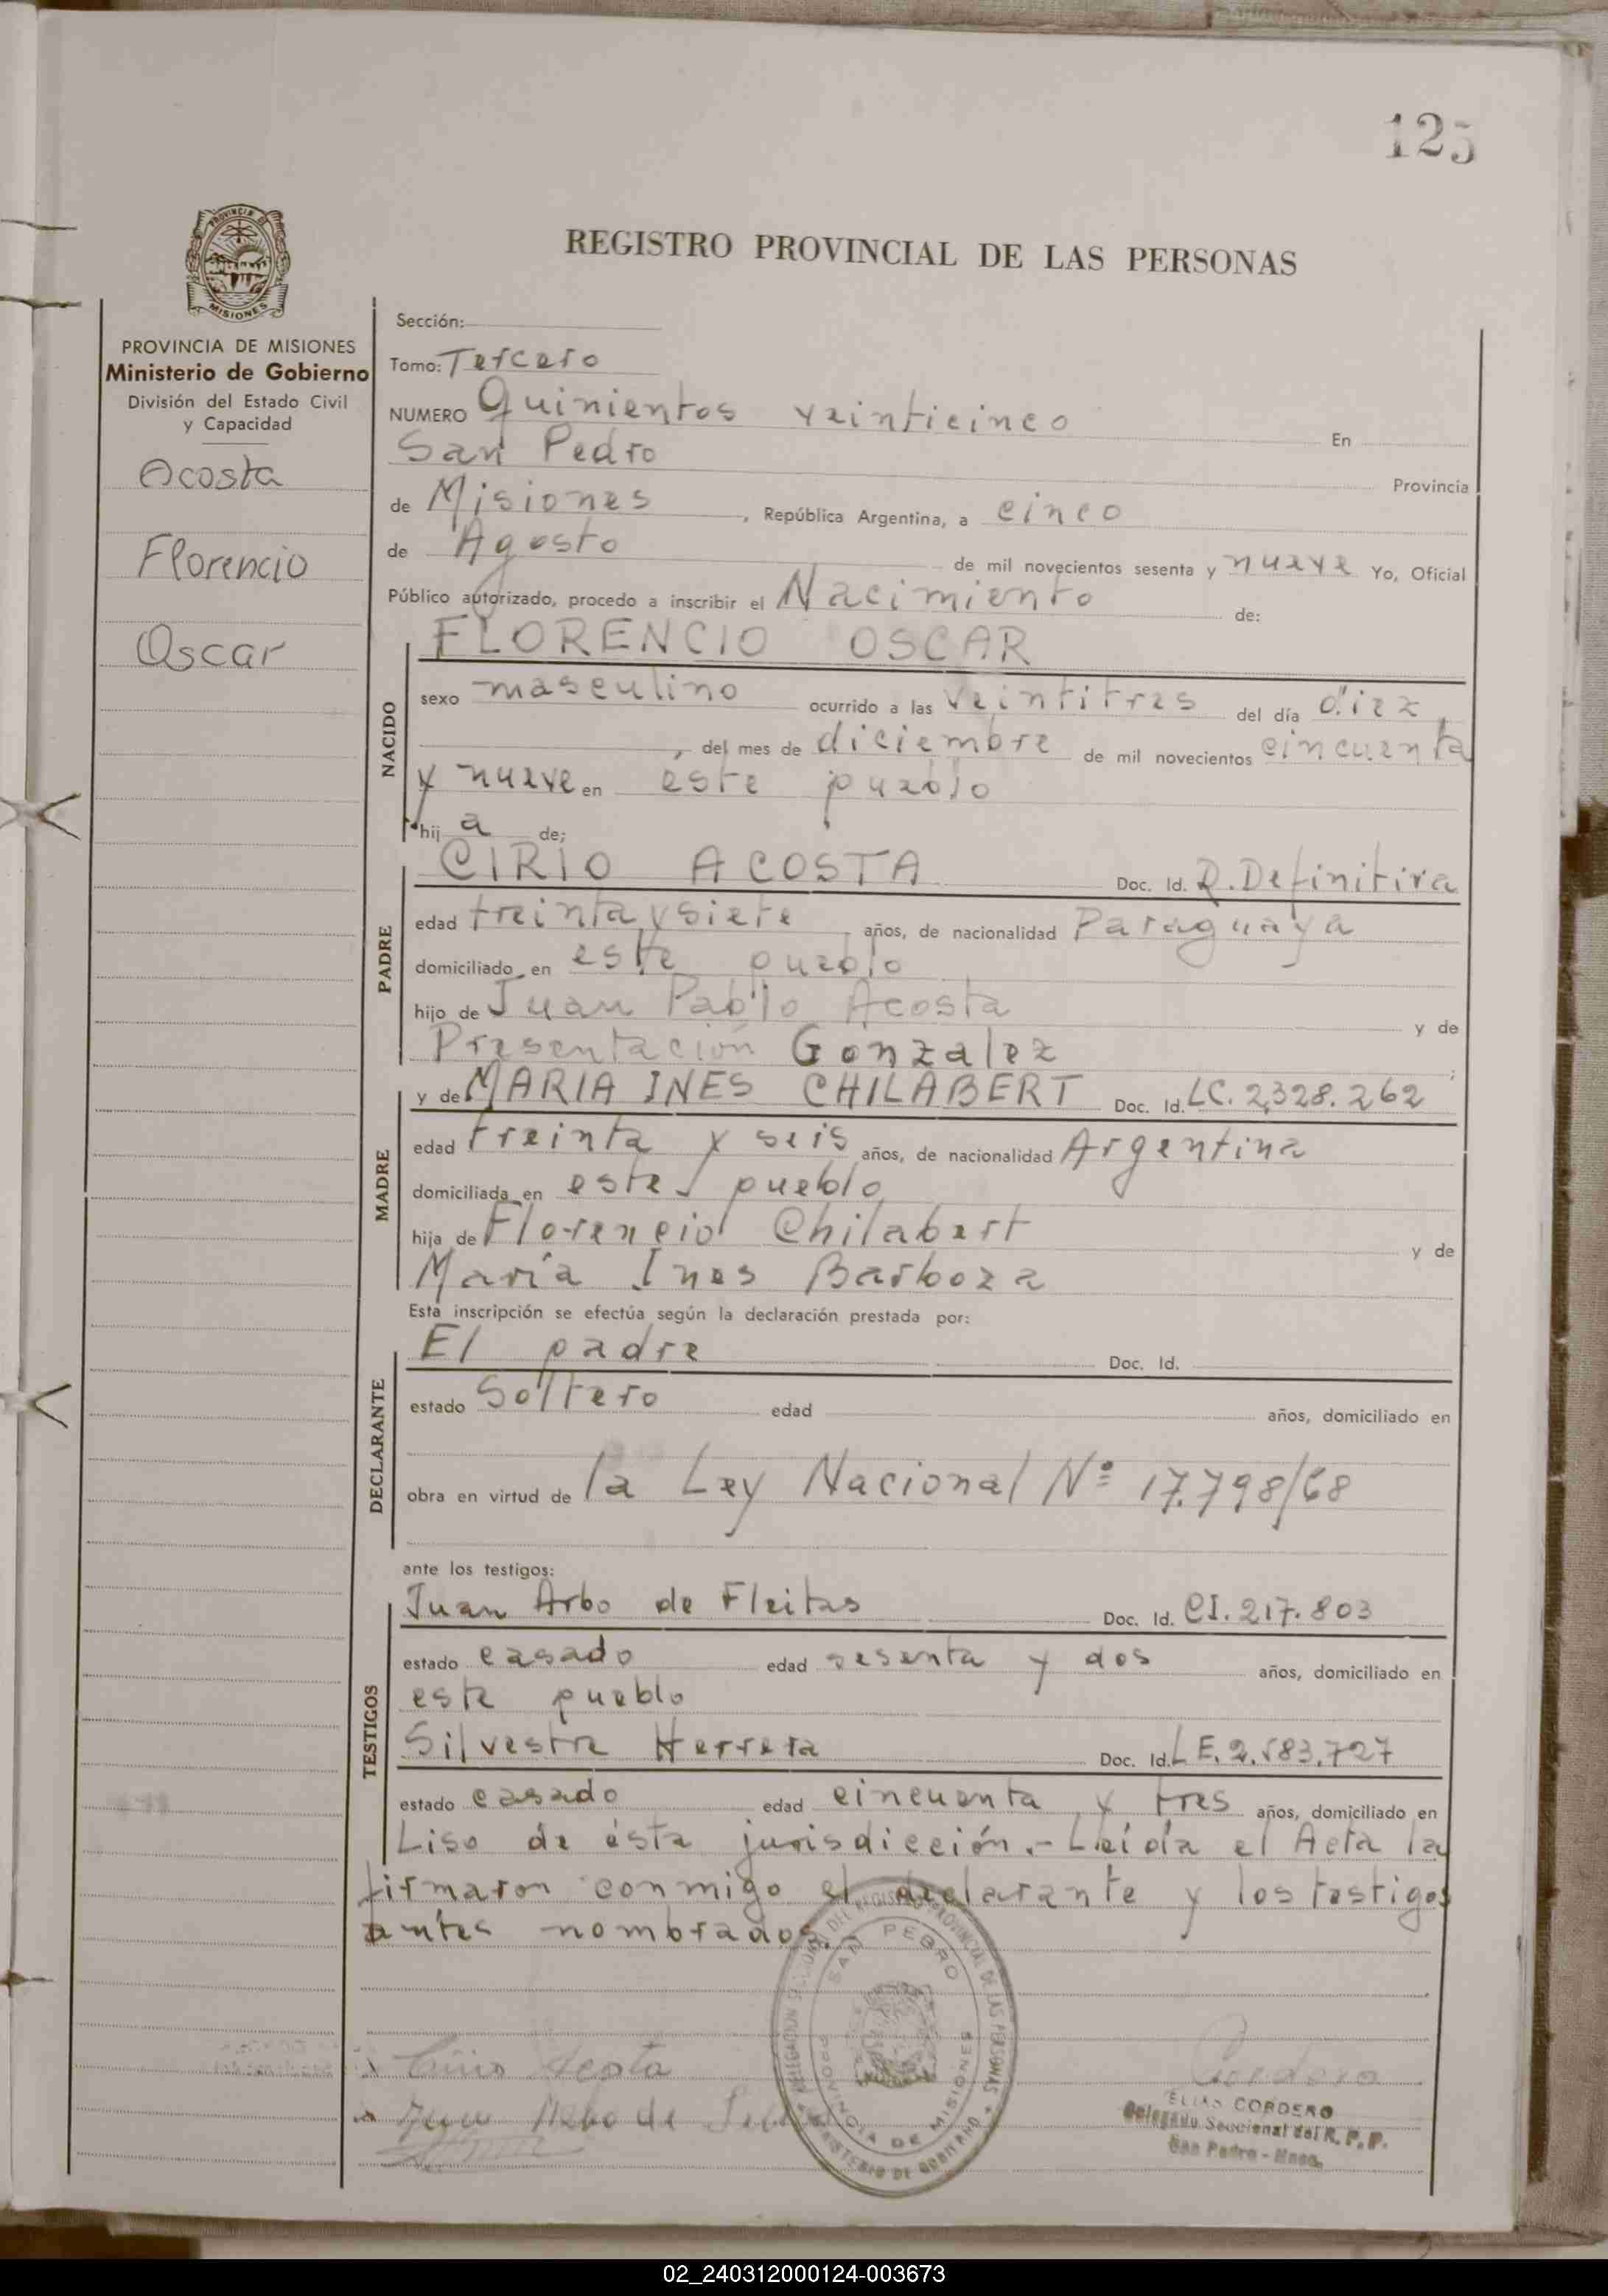 125
REGISTRO PROVINCIAL DE LAS PERSONAS
PROVINCIA DE MISIONES
Ministerio de Gobierno
División del Estado Civil
y Capacidad
Acosta
Florencio
Oscar
Sección:
Tomo: Tercero
NUMERO Quinientos veinticinco En
San Pedro Provincia
de Misiones, República Argentina, a cinco
de Agosto de mil novecientos sesenta y nueve Yo, Oficial
Público autorizado, procedo a inscribir el Nacimiento de:
NACIDO
FLORENCIO OSCAR
sexo masculino ocurrido a las veintitres del día diez,
, del mes de diciembre de mil novecientos cincuenta
y nueve en éste pueblo
hij a de;
PADRE
CIRIO ACOSTA Doc. Id. R. Definitiva
edad treinta y siete años, de nacionalidad Paraguaya
domiciliado en este pueblo
hijo de Juan Pablo Acosta y de
Presentación Gonzalez
MADRE
y de MARIA INES CHILABERT Doc. Id. LC. 2.328.262
edad treinta y seis años, de nacionalidad Argentina
domiciliada en este pueblo
hija de Florencio Chilabert y de
María Ines Barboza
Esta inscripción se efectúa según la declaración prestada por:
DECLARANTE
El padre Doc. Id.
estado Soltero edad años, domiciliado en
obra en virtud de la Ley Nacional Nº 17.798/68
ante los testigos:
TESTIGOS
Juan Arbo de Fleitas Doc. Id. CI. 217.803
estado casado edad sesenta y dos años, domiciliado en
este pueblo
Silvestre Herrera Doc. Id. LE. 2.583.727
estado casado edad cincuenta y tres años, domiciliado en
Liso de ésta jurisdicción.- Leída el Acta la
firmaron conmigo el declarante y los testigos
antes nombrados.-
DELEGACION SECCIONAL DEL REGISTRO PROVINCIAL DE LAS PERSONAS
SAN PEDRO
PROVINCIA DE MISIONES
MINISTERIO DE GOBIERNO
Cordero
ELIAS CORDERO
Delegado Seccional del R. P. P.
San Pedro - Mnes.
02_240312000124-003673